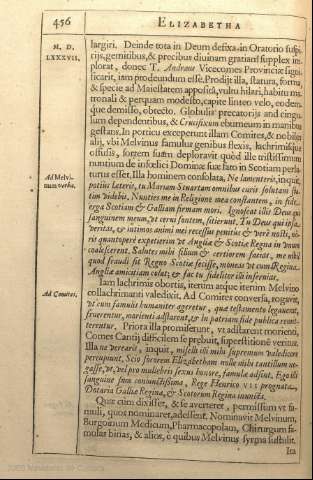 456 ELIZABETHA
M. D.
LXXXVII.
largiri. Deinde tota in Deum defixa in Oratorio suspi-
rijs, gemitibus, & precibus divinam gratiam supplex im-
plorat, donec T. Andreæ Vicecomes Provinciæ signi-
ficarit, iam prodeundum esse. Prodit illa, statura, forma,
& specie ad Maiestatem apposita, vultu hilari, habitu ma-
tronali & perquam modesto, capite linteo velo, eodem-
que demisso, obtecto. Globulis precatorijs and cingu-
lum dependentibus, & Crucifixum eburneum in manibus
gestans. In porticu exceperunt illam Comites, & nobiles
alij, vbi Melvinus famulus genibus flexis, lachrimisque
effusis, sortem suam deploravit quòd ille tristissimum
nuntium de infelici Dominæ suæ fato in Scotiam perla-
turus esset. Illa hominem consolata, Ne lamenteris, inquit,
Ad Melvi-
num verba.
potius læteris, tu Mariam Stuartam omnibus curis solutam sta-
tim videbis, Nunties me in Religione mea constantem, in fide
erga Scotiam & Galliam firmam mori. Ignoscat illis Deus qui
sanguinem meum, vt cervi fontem, sitierunt. Tu Deus qui ipsa
veritas, & intimos animi mei recessus penitus & verè nosti, nô-
ris quantoperè expetierim vt Anglia & Scotiæ Regna in vnum
coalescerent. Salutes mihi filium & certiorem facias, me nihil
quod fraudi sit Regno Scotiæ fecisse, moneas vt cum Regina
Angliæ amicitiam colat; & fac tu fideliter illi inservias.
Iam lachrimis obortis, iterum atque iterum Melvino
Ad Comites.
collachrimanti valedixit. Ad Comites conversa, rogavit,
vt cum famulis humaniter ageretur, quæ testamento legavit,
fruerentur, morienti adstarent, & in patriam fide publica remit-
terentur. Priora illa promiserunt, vt adstarent morienti,
Comes Cantij difficilem se præbuit, superstitionē veritus.
Illa ne vereare, inquit, miselli illi mihi supremum valedicere
percupiunt. Scio sororem Elizabetham nolle mihi tantillum ne-
gasse, vt, vel pro muliebris sexus honore, famulæ adsint. Ego illi
sanguine sum coniunctissima, Rege Henrico VII prognata,
Dotaria Galliæ Regina, & Scotorum Regina inuncta.
Quæ cùm dixisset, & se averteret, permissum vt fa-
muli, quos nominaret, adessent. Nominavit Melvinum,
Burgoinum Medicum, Pharmacopolam, Chirurgum fa-
mulas binas, & alios, e quibus Melvinus syrma sustulit.
Ita